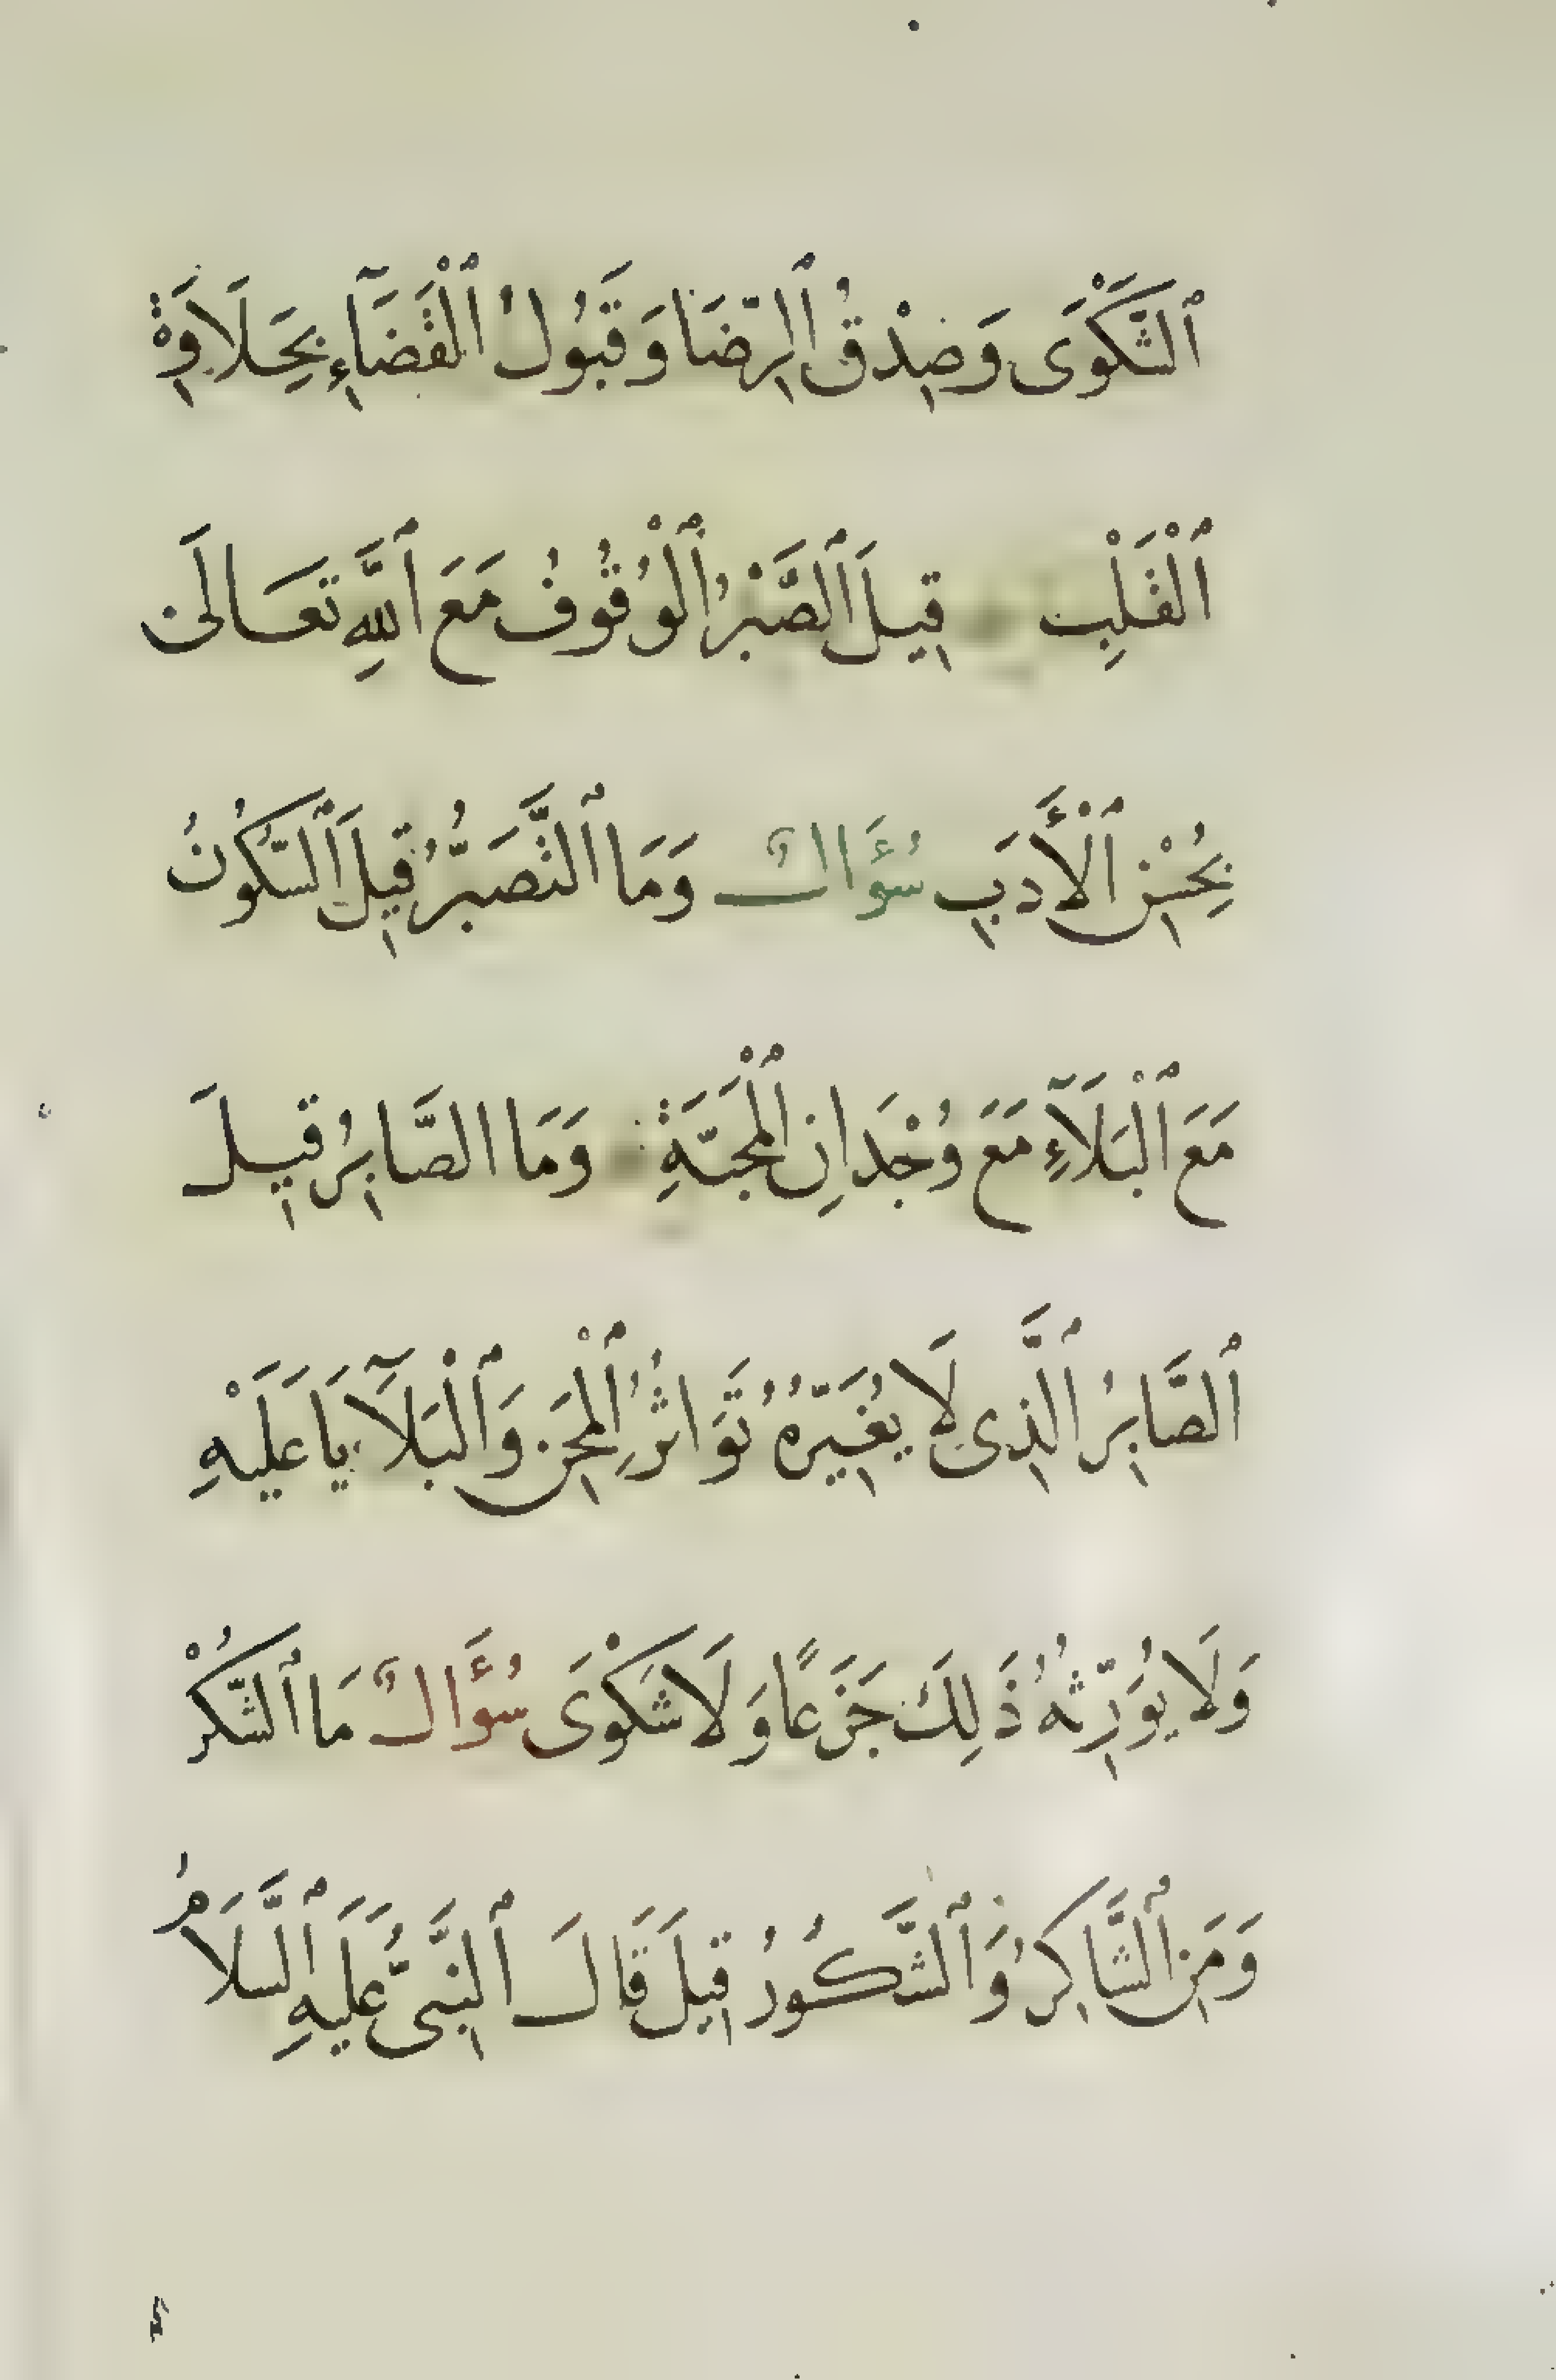 ٱلشَّكْوَى وَصِدْقُ ٱلرِّضَا وَقَبُولُ ٱلْقَضَآءِ بِحَلَاوَةِ
ٱلْقَلْبِ قِيلَ ٱلصَّبْرُ ٱلْوُقُوفُ مَعَ ٱللَّهِ تَعَالَى
بِحُسْنِ ٱلْأَدَبِ سُؤَالٌ وَمَا ٱلتَّصَبُّرُ قِيلَ ٱلسُّكُونُ
مَعَ ٱلْبَلَآءِ مَعَ وُجْدَانِ ٱلْمَحَبَّةِ وَمَا الصَّابِرُ قِيلَ
ٱلصَّابِرُ ٱلَّذِى لَا يُغَيِّرُهُ تَوَاتُرُ ٱلْمِحَنِ وَٱلْبَلَآيَا عَلَيْهِ
وَلَا يُوَرِّثُهُ ذَلِكَ جَزَعًا وَلَا شَكْوَى سُؤَالٌ مَا ٱلشُّكْرُ
وَمَنِ ٱلشَّاكِرُ وَٱلشَّكُورُ قِيلَ قَالَ ٱلنَّبِىُّ عَلَيْهِ ٱلسَّلَامُ